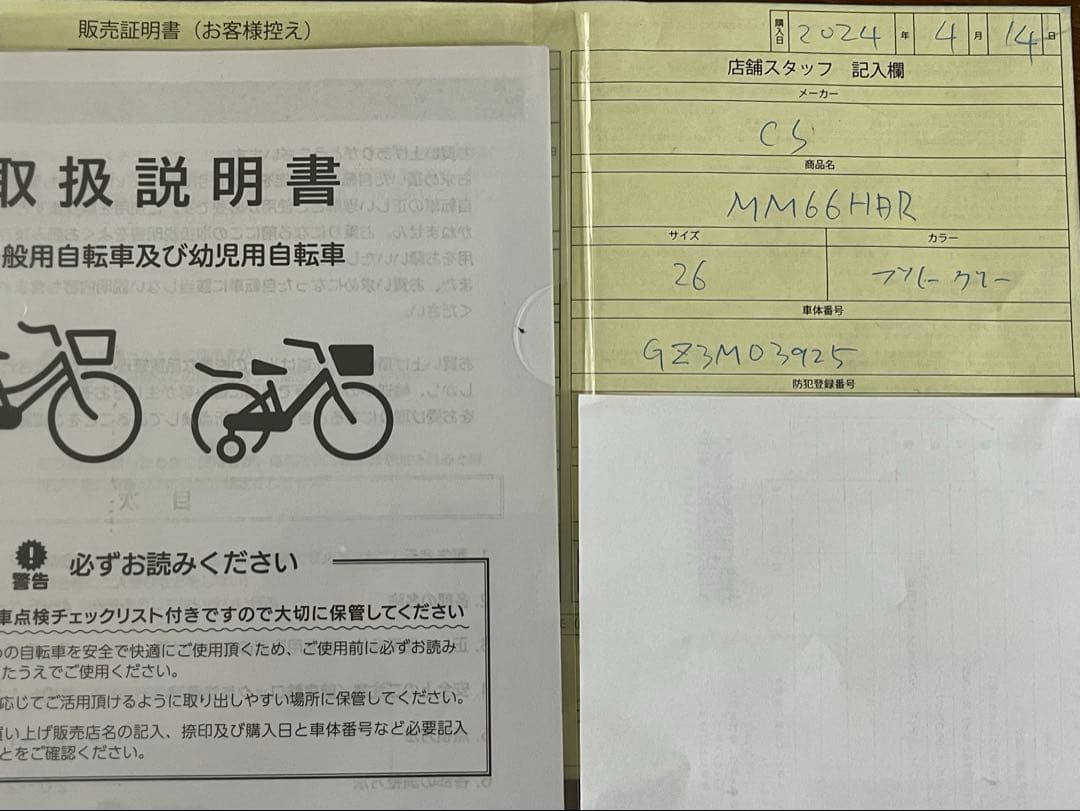 販売証明書（お客様控え）
購入日 2024 年 4 月 14 日
店舗スタッフ 記入欄
メーカー
CS
商品名
MM66HAR
サイズ カラー
26
車体番号
GZ3M03925
防犯登録番号
取扱説明書
般用自転車及び幼児用自転車
警告 必ずお読みください
車点検チェックリスト付きですので大切に保管してください
の自転車を安全で快適にご使用頂くため、ご使用前に必ずお読み
たうえでご使用ください。
応じてご活用頂けるように取り出しやすい場所に保管してください。
い上げ販売店名の記入、捺印及び購入日と車体番号など必要記入
とをご確認ください。